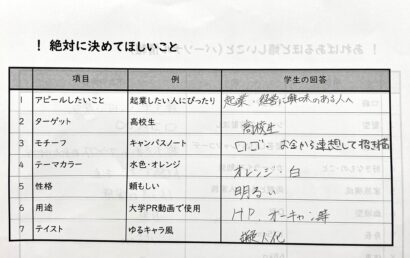 ! 絶対に決めてほしいこと
項目 例 学生の回答
1 アピールしたいこと 起業したい人にぴったり 起業・経営に興味のある人へ
2 ターゲット 高校生 高校生
3 モチーフ キャンパスノート ロゴ・お金から連想して招き猫
4 テーマカラー 水色・オレンジ オレンジ・白
5 性格 頼もしい 明るい
6 用途 大学PR動画で使用 HP、オーキャン等
7 テイスト ゆるキャラ風 擬人化